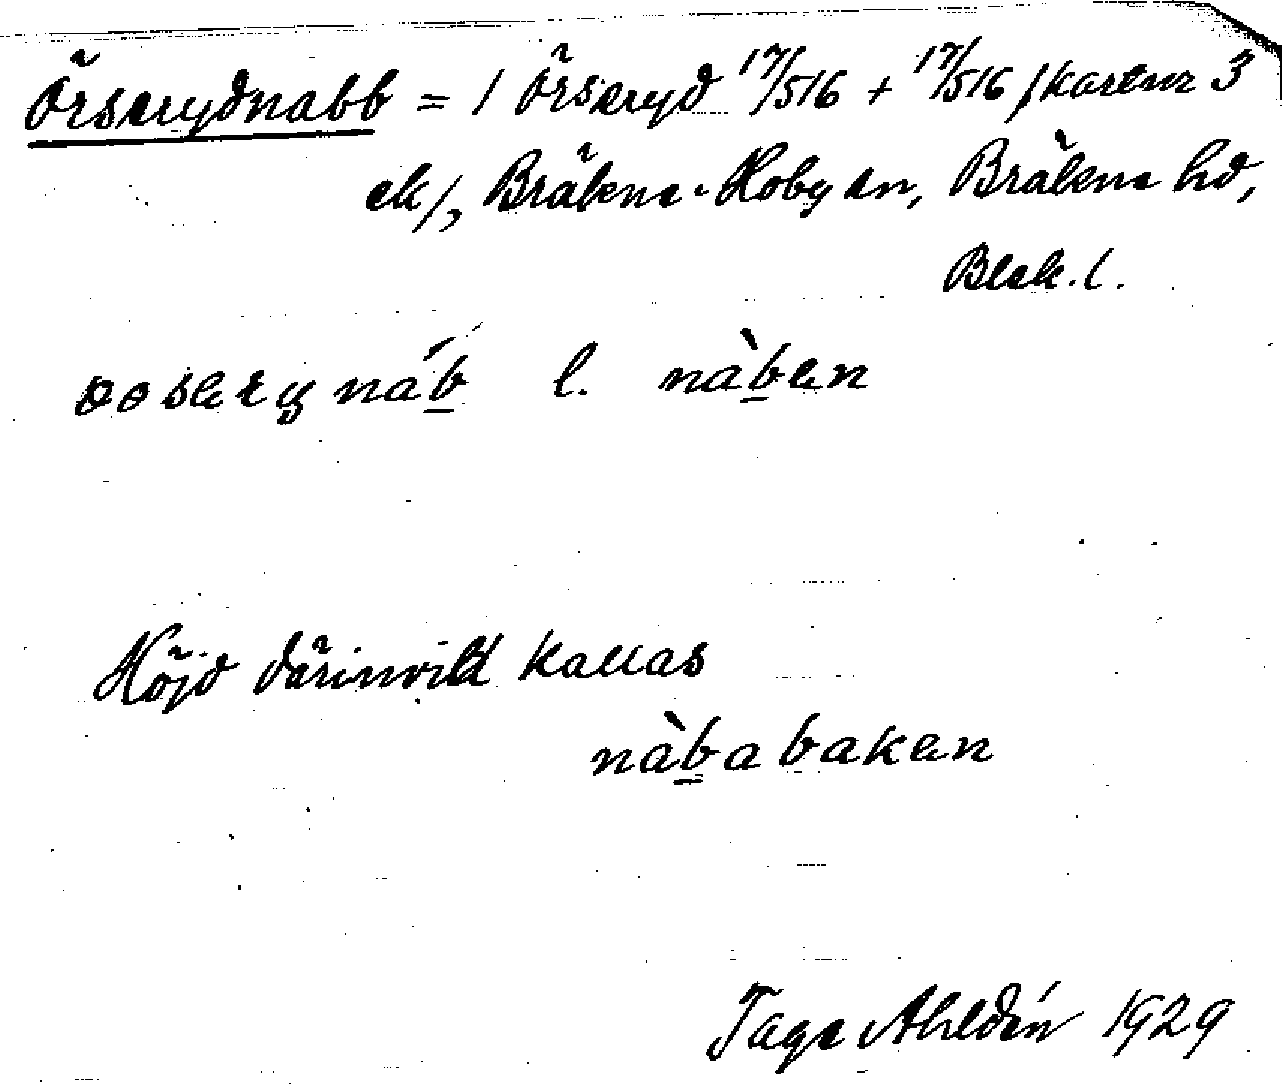 Örserydnabb = 1 Örseryd 17/516 + 17/516 /kartnr 3
ek/, Bräkne-Hoby sn, Bräkne hd,
Blek. l.
náb l. nàben
Höjd därinvid kallas
nàbabaken
Tage Ahldén 1929